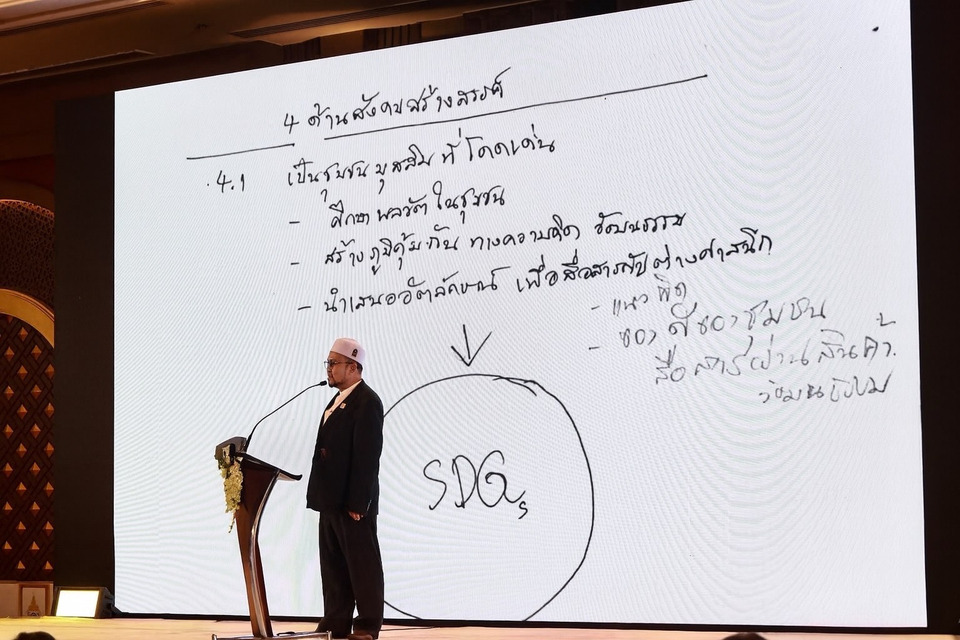 4 ด้านสังคมสร้างสรรค์
4.1 เป็นชุมชนมุสลิมที่โดดเด่น
- ศึกษาพลวัตในชุมชน
- สร้างภูมิคุ้มกันทางความคิด วัฒนธรรม
- นำเสนออัตลักษณ์ เพื่อสื่อสารกับต่างศาสนิก
- แนวคิด
- ของดีของชุมชน
สื่อสารผ่านสินค้า
SDGs